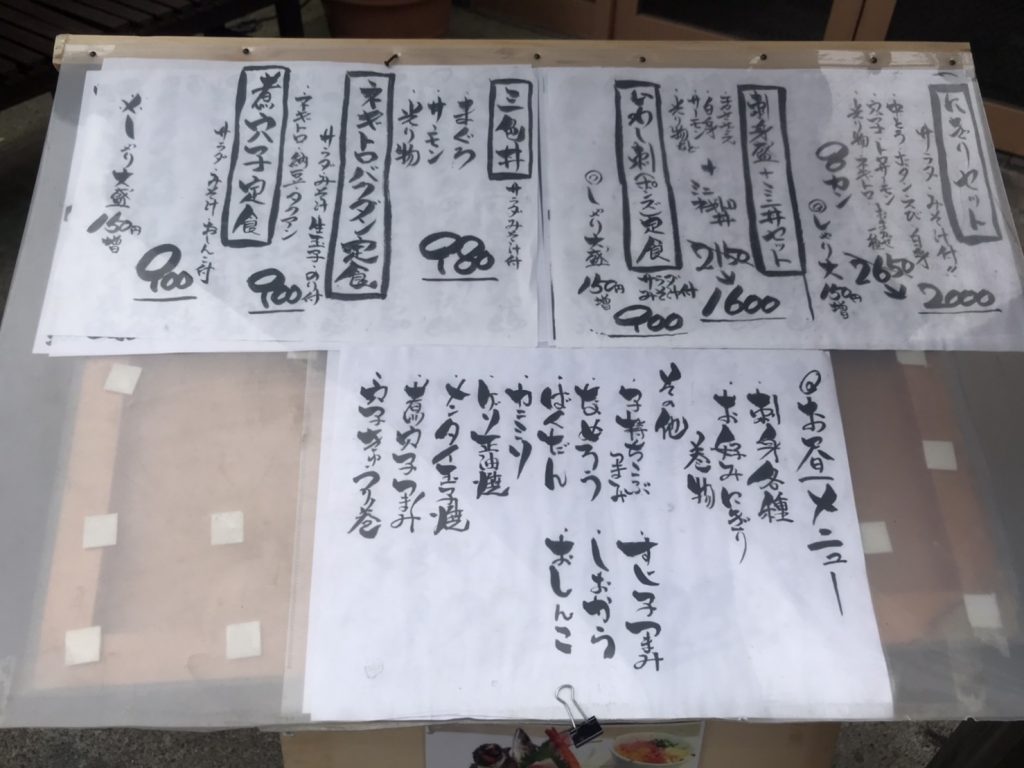 にぎりセット
サラダ・みそ汁付
中とろ ホタテ えび 白身
穴子 サーモン
光り物 ネギトロ
8カン
2650→2000
◎しゃり大 150円増
刺身盛+ミニ丼セット
まぐろ
白身
サーモン
光り物
+
ミニ
2150→1600
いわし刺
定食
サラダ
みそ汁付
◎しゃり大盛
150円増
900
三色丼
サラダみそ汁付
・まぐろ
・サーモン
・光り物
980
ネギトロバクダン定食
・ネギトロ・納豆・タクアン
サラダ・みそ汁・生玉子・のり付
900
煮穴子定食
サラダ・みそ汁・おしんこ付
900
・めし
大盛
150円増
◎お昼一メニュー
・刺身各種
・お好みにぎり
巻物
その他
・子持ちこぶつまみ
・すじ子つまみ
・しおから
・ばくだん
・おしんこ
・カミソリ
・メンタイ玉子焼
・煮穴子つまみ
・穴子きゅうり巻